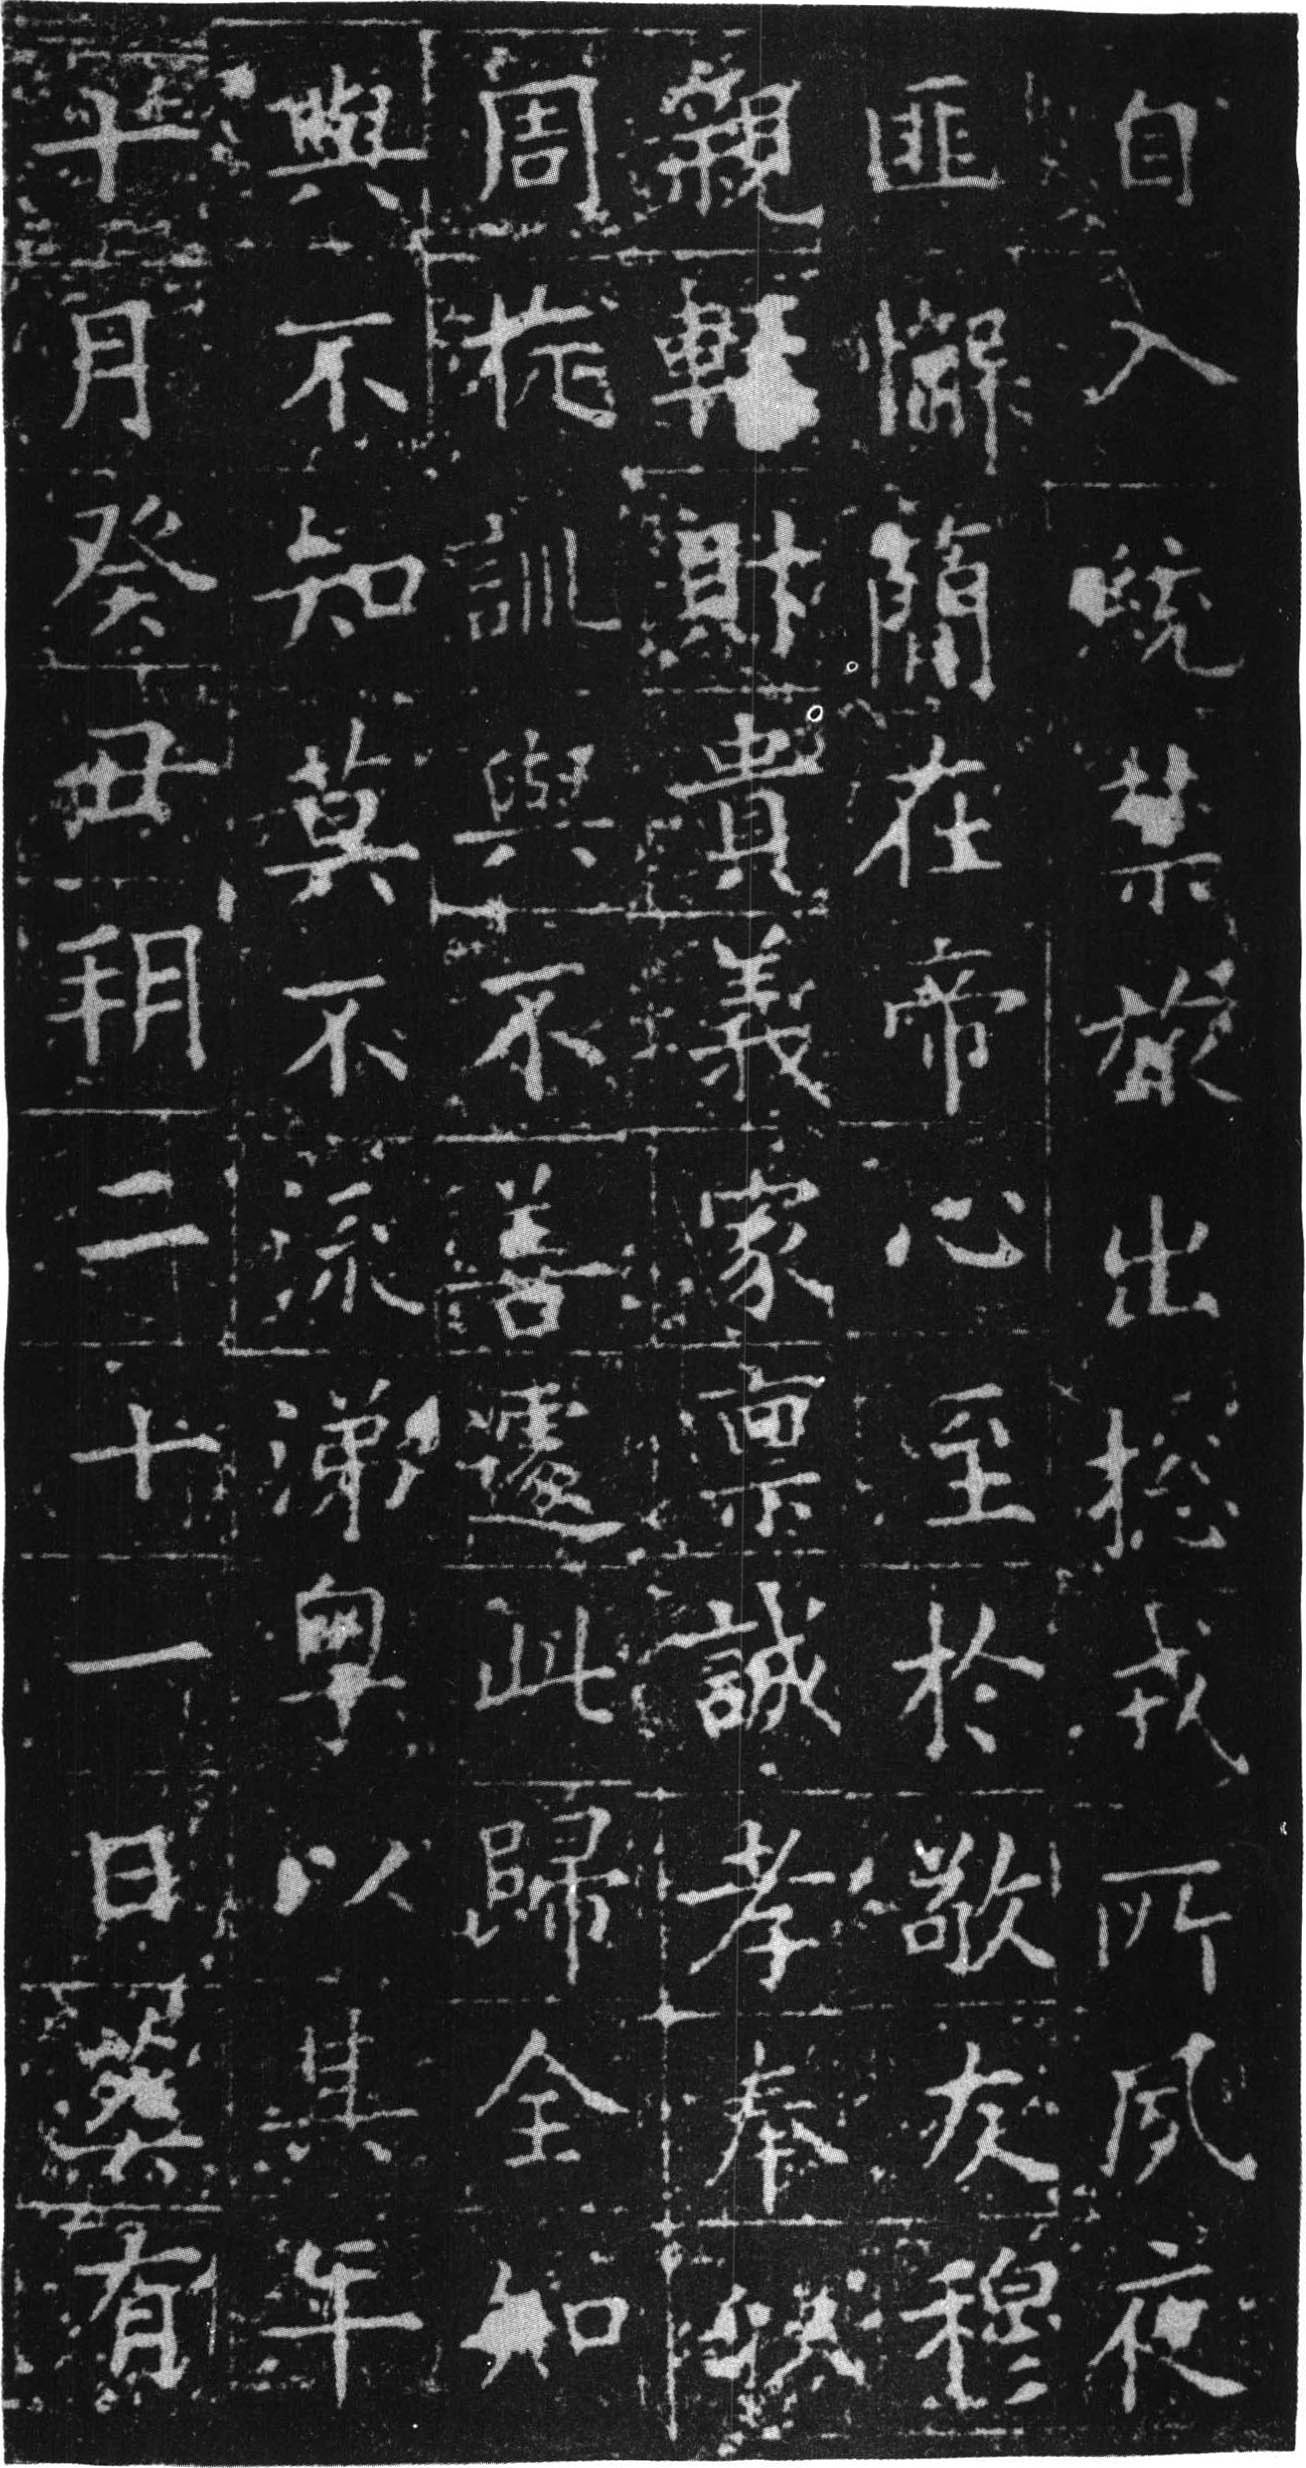 自入統禁旅出揔戎所夙夜
匪懈簡在帝心至於敬友穆
親輕財貴義家稟誠孝奉
周旋訓與不善遽此歸全知
與不知莫不流涕粵以其年
十月癸丑朔二十一日葬有